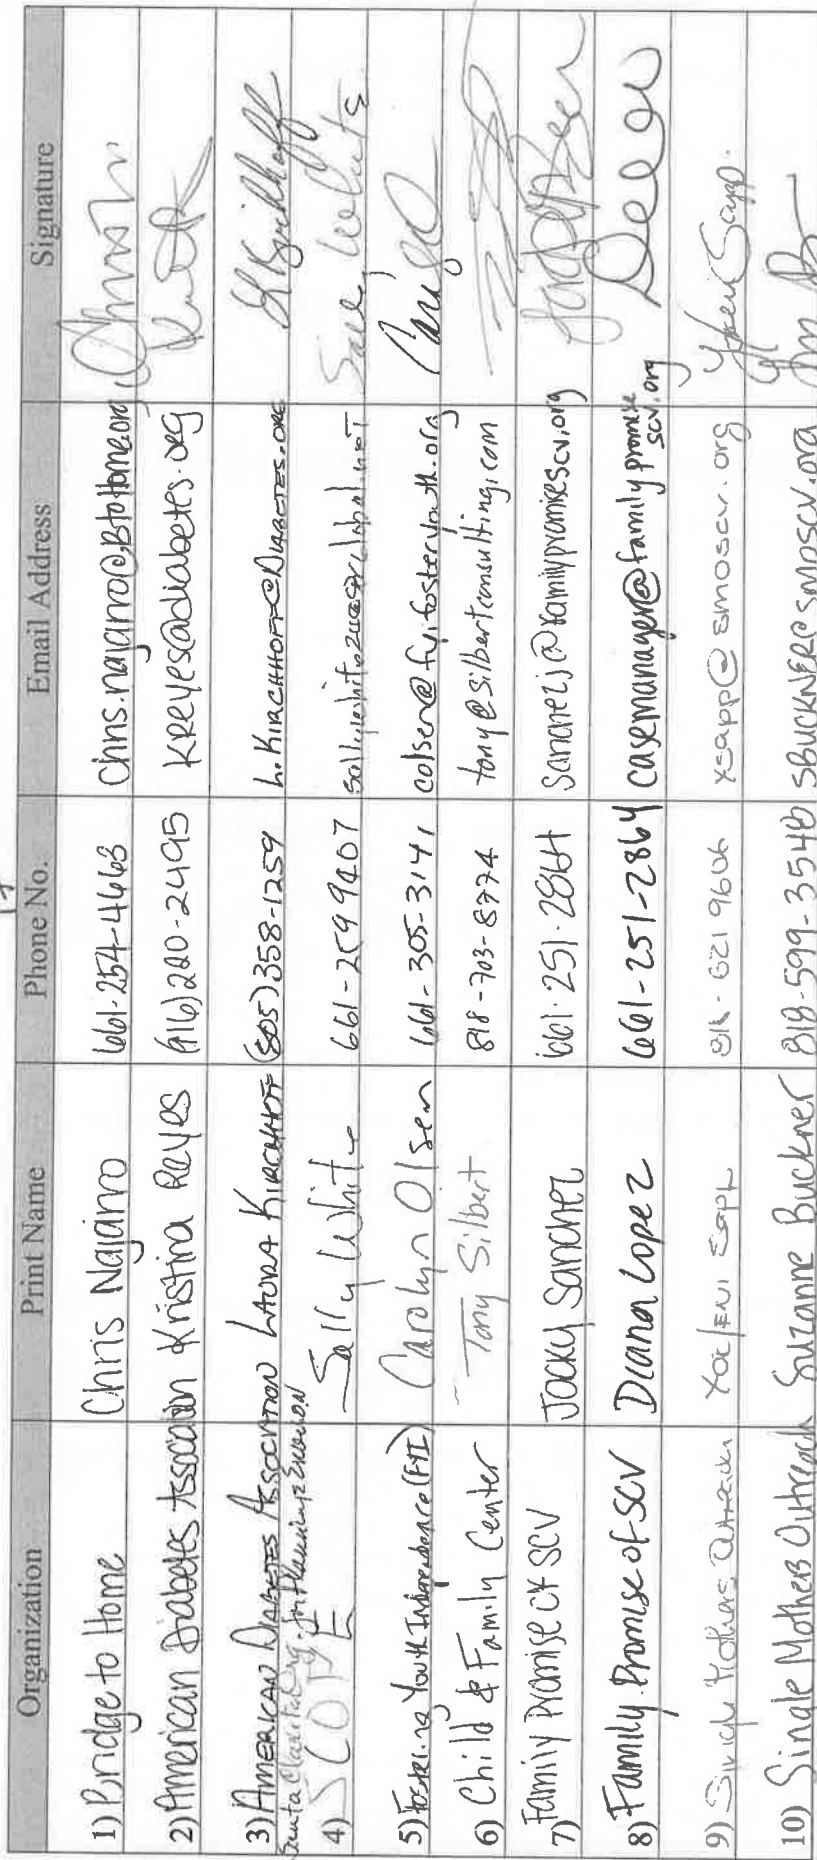 17
Organization Print Name Phone No. Email Address Signature
1) Bridge to Home Chris Najarro 661-254-4663 Chris.najarro@Btohome.org
2) American Diabetes Association Kristina Reyes (916)220-2495 KReyes@diabetes.org
3) AMERICAN DIABETES ASSOCIATION LAURA KIRCHHOFF (805)358-1259 L.KIRCHHOFF@DIABETES.ORG LKirchhoff
Santa Clarita Org. for Planning & Environ
4) SCOPE Sally White 661-259 9407 Sally White
5) Fostering Youth Independence (FYI) Carolyn Olsen 661-305-3141 colsen@fyifosteryouth.org
6) Child & Family Center Tony Silbert 818-703-8774 tony@silbertconsulting.com
7) Family Promise of SCV Jacky Sanchez 661-251-2864 Sanchezj@familypromisescv.org
8) Family Promise of SCV Diana Lopez 661-251-2864 casemanager@familypromise
scv.org
9) Single Mothers Outreach Sapp 818-621 9606 xsapp@smoscv.org
10) Single Mothers Outreach Suzanne Buckner 818-599-3546 SBUCKNER@SMOSCV.org